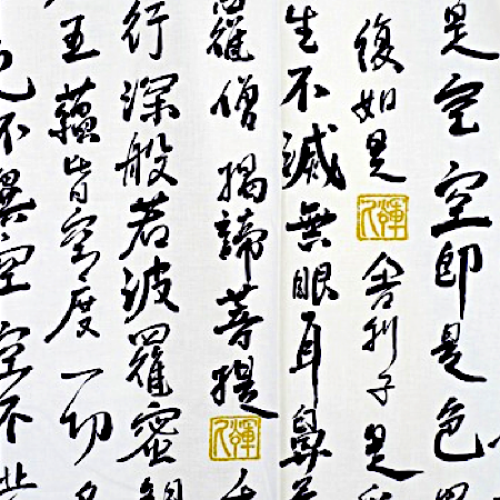 是空空即是色
復如是舍利子是
生不滅無眼耳鼻
羅僧揭諦菩提
行深般若波羅蜜
五蘊皆空度一切
色不異空空不